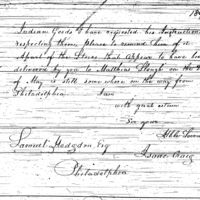 180
Indian Goods I have requested his Instructions
respecting them, please to remind him of it
A part of the Stores that appear to have been
delivered by you to Matthias Slough on the
of May is still some where on the way from
Philadelphia I am
with great esteem
Sir your
Isaac Craig
Samuel Hodgdon Esq
Philadelphia